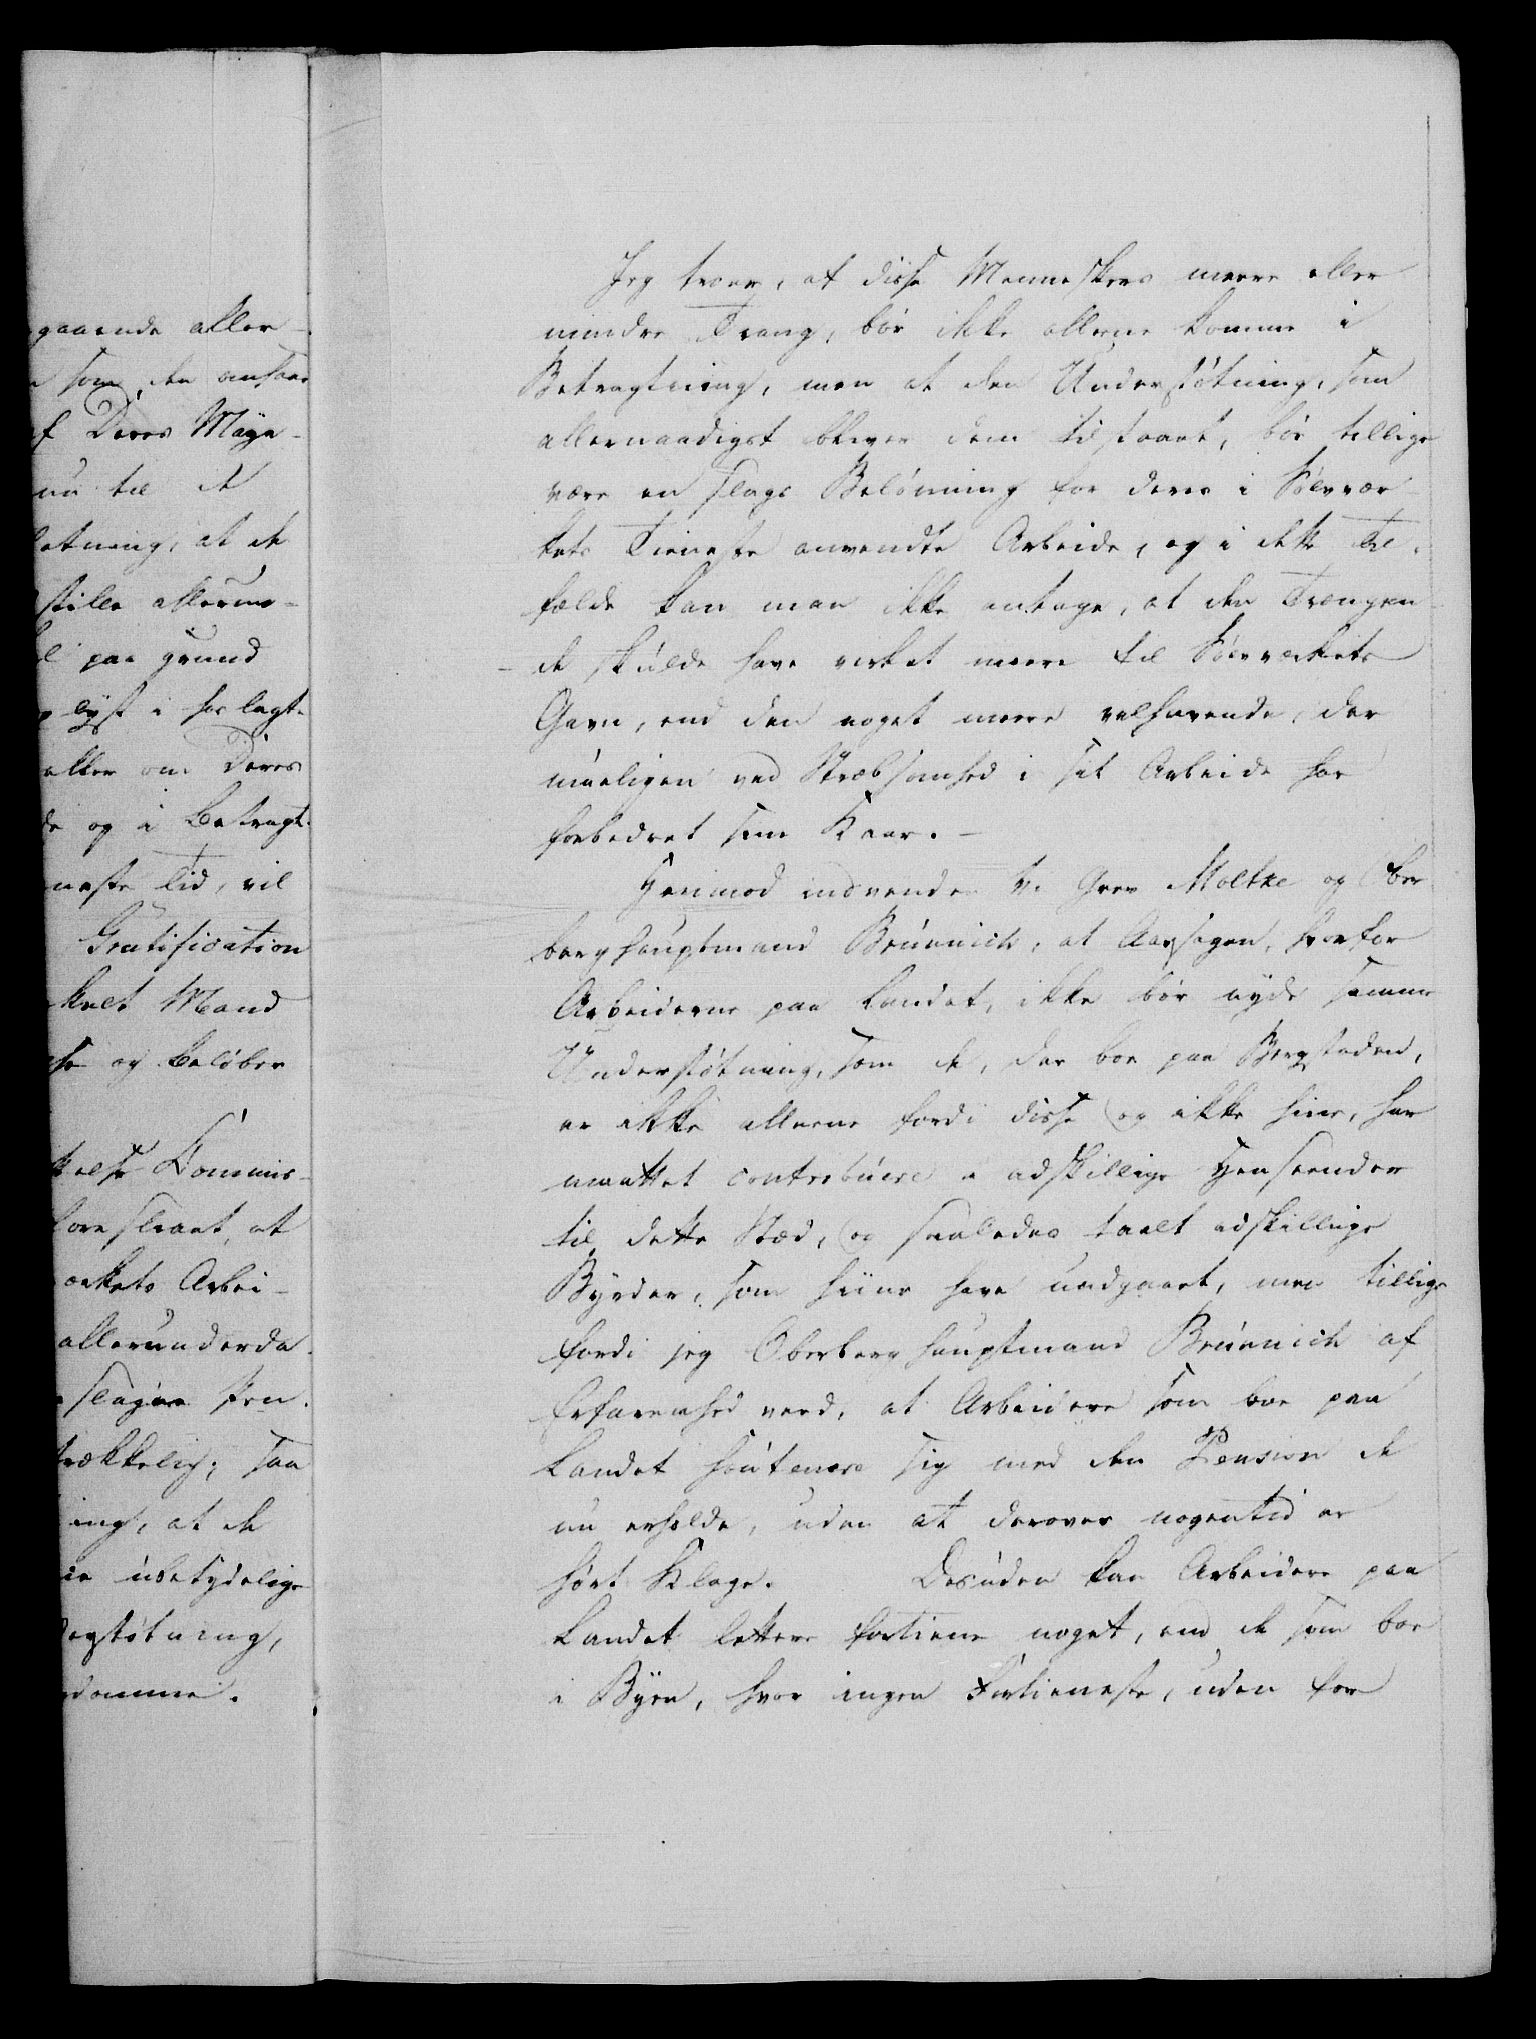 gaaende aller-
som den ansaae
af Deres Maye-
nu til at
letning, at de
stille allerun-
paa grund
lyst i forlagt-
eller om Deres
de og i Betragt-
neste Tid, vil
Gratification
kelt Mand
og beløber
kelse Kommis-
foreslaaet, at
værkets Arbei-
allerunderda-
slagne Pen-
trækkelig; saa
ing, at de
ubetydelige
derstøtning,
domme.
Jeg troer, at disse Menneskers meere eller
mindre Trang, bør ikke allene komme i
Betragtning, men at den Understøtning, som
allernaadigst bliver dem tilstaaet, bør tillige
være en slags Belønning for deres i Sølvvær-
kets Tieneste anvendte Arbeide, og i dette Til-
fælde kan man ikke antage, at den Trængen-
de skulde have virket meere til Sølvværkets
Gavn, end den noget meere velhavende, der
mueligen ved Stræbsomhed i sit Arbeide har
forbedret sine Kaar. -
Herimod indvender Vi Grev Moltke og Ober
berghauptmand Brünnich, at Aarsagen, hvorfor
Arbeiderne paa Landet, ikke bør nyde samme
Understøtning, som de, der boe paa Bergstaden,
er ikke allene fordi disse og ikke hine, har
maattet contribuere i adskillige Henseender
til dette Stæd, og saaledes taalt adskillige
Byrder, som hiine have undgaaet, men tillige
fordi jeg Oberberghauptmand Brünnich af
Erfarenhed veed, at Arbeidere som boe paa
Landet soutenere sig med den Pension de
nu erholde, uden at derover nogentid er
hørt Klage. Desuden kan Arbeidere paa
Landet lettere fortiene noget, end de som boe
i Byen, hvor ingen Fortieneste, uden for